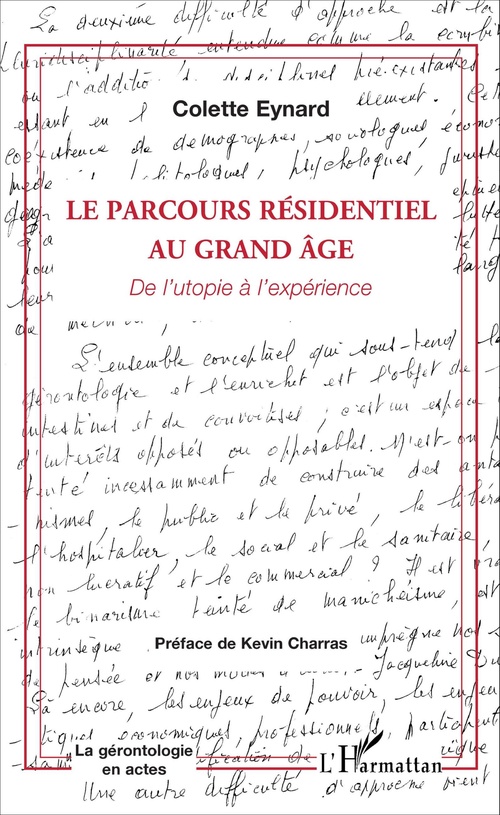 La deuxième difficulté d'approche est la
pluridisciplinarité entendue comme la
ou l'additio disciplines pré-existantes
Colette Eynard
essant en l ellement. Cet
coexistence de démographes, sociologues, écono
psychologues, juriste
LE PARCOURS RÉSIDENTIEL
AU GRAND ÂGE
De l'utopie à l'expérience
pour
leur
L'ensemble conceptuel qui sous-tend l
gérontologie et l'enrichit est l'objet de
intestines et de convoitises ; c'est un espace
d'intérêts opposés ou opposables. N'est-on p
tenté incessamment de construire des anta
-nismes, le public et le privé, le libéra
l'hospitalier, le social et le sanitaire,
non lucratif et le commercial ? Il est vrai
le binarisme teinté de manichéisme, est
intrinsèque imprègne nos
Préface de Kevin Charras
de pensée et nos Jacqueline
Là encore, les enjeux de pouvoir, les enjeu
-tiques économiques, professionnels, participent
La gérontologie
en actes
L'Harmattan
Une autre difficulté d'approche vient